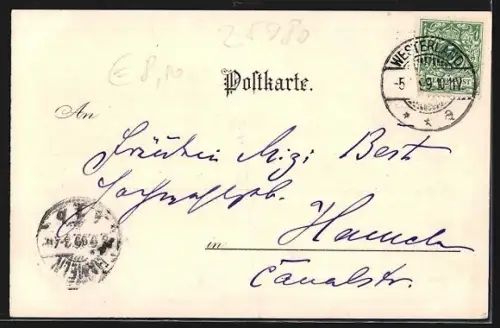 25980
€ 8,10
Postkarte.
WESTERLAND
-5. 9. 9 10-11V.
* * a
An
Fräulein Mizi Best
in Hameln
Canalstr.
HAMELN